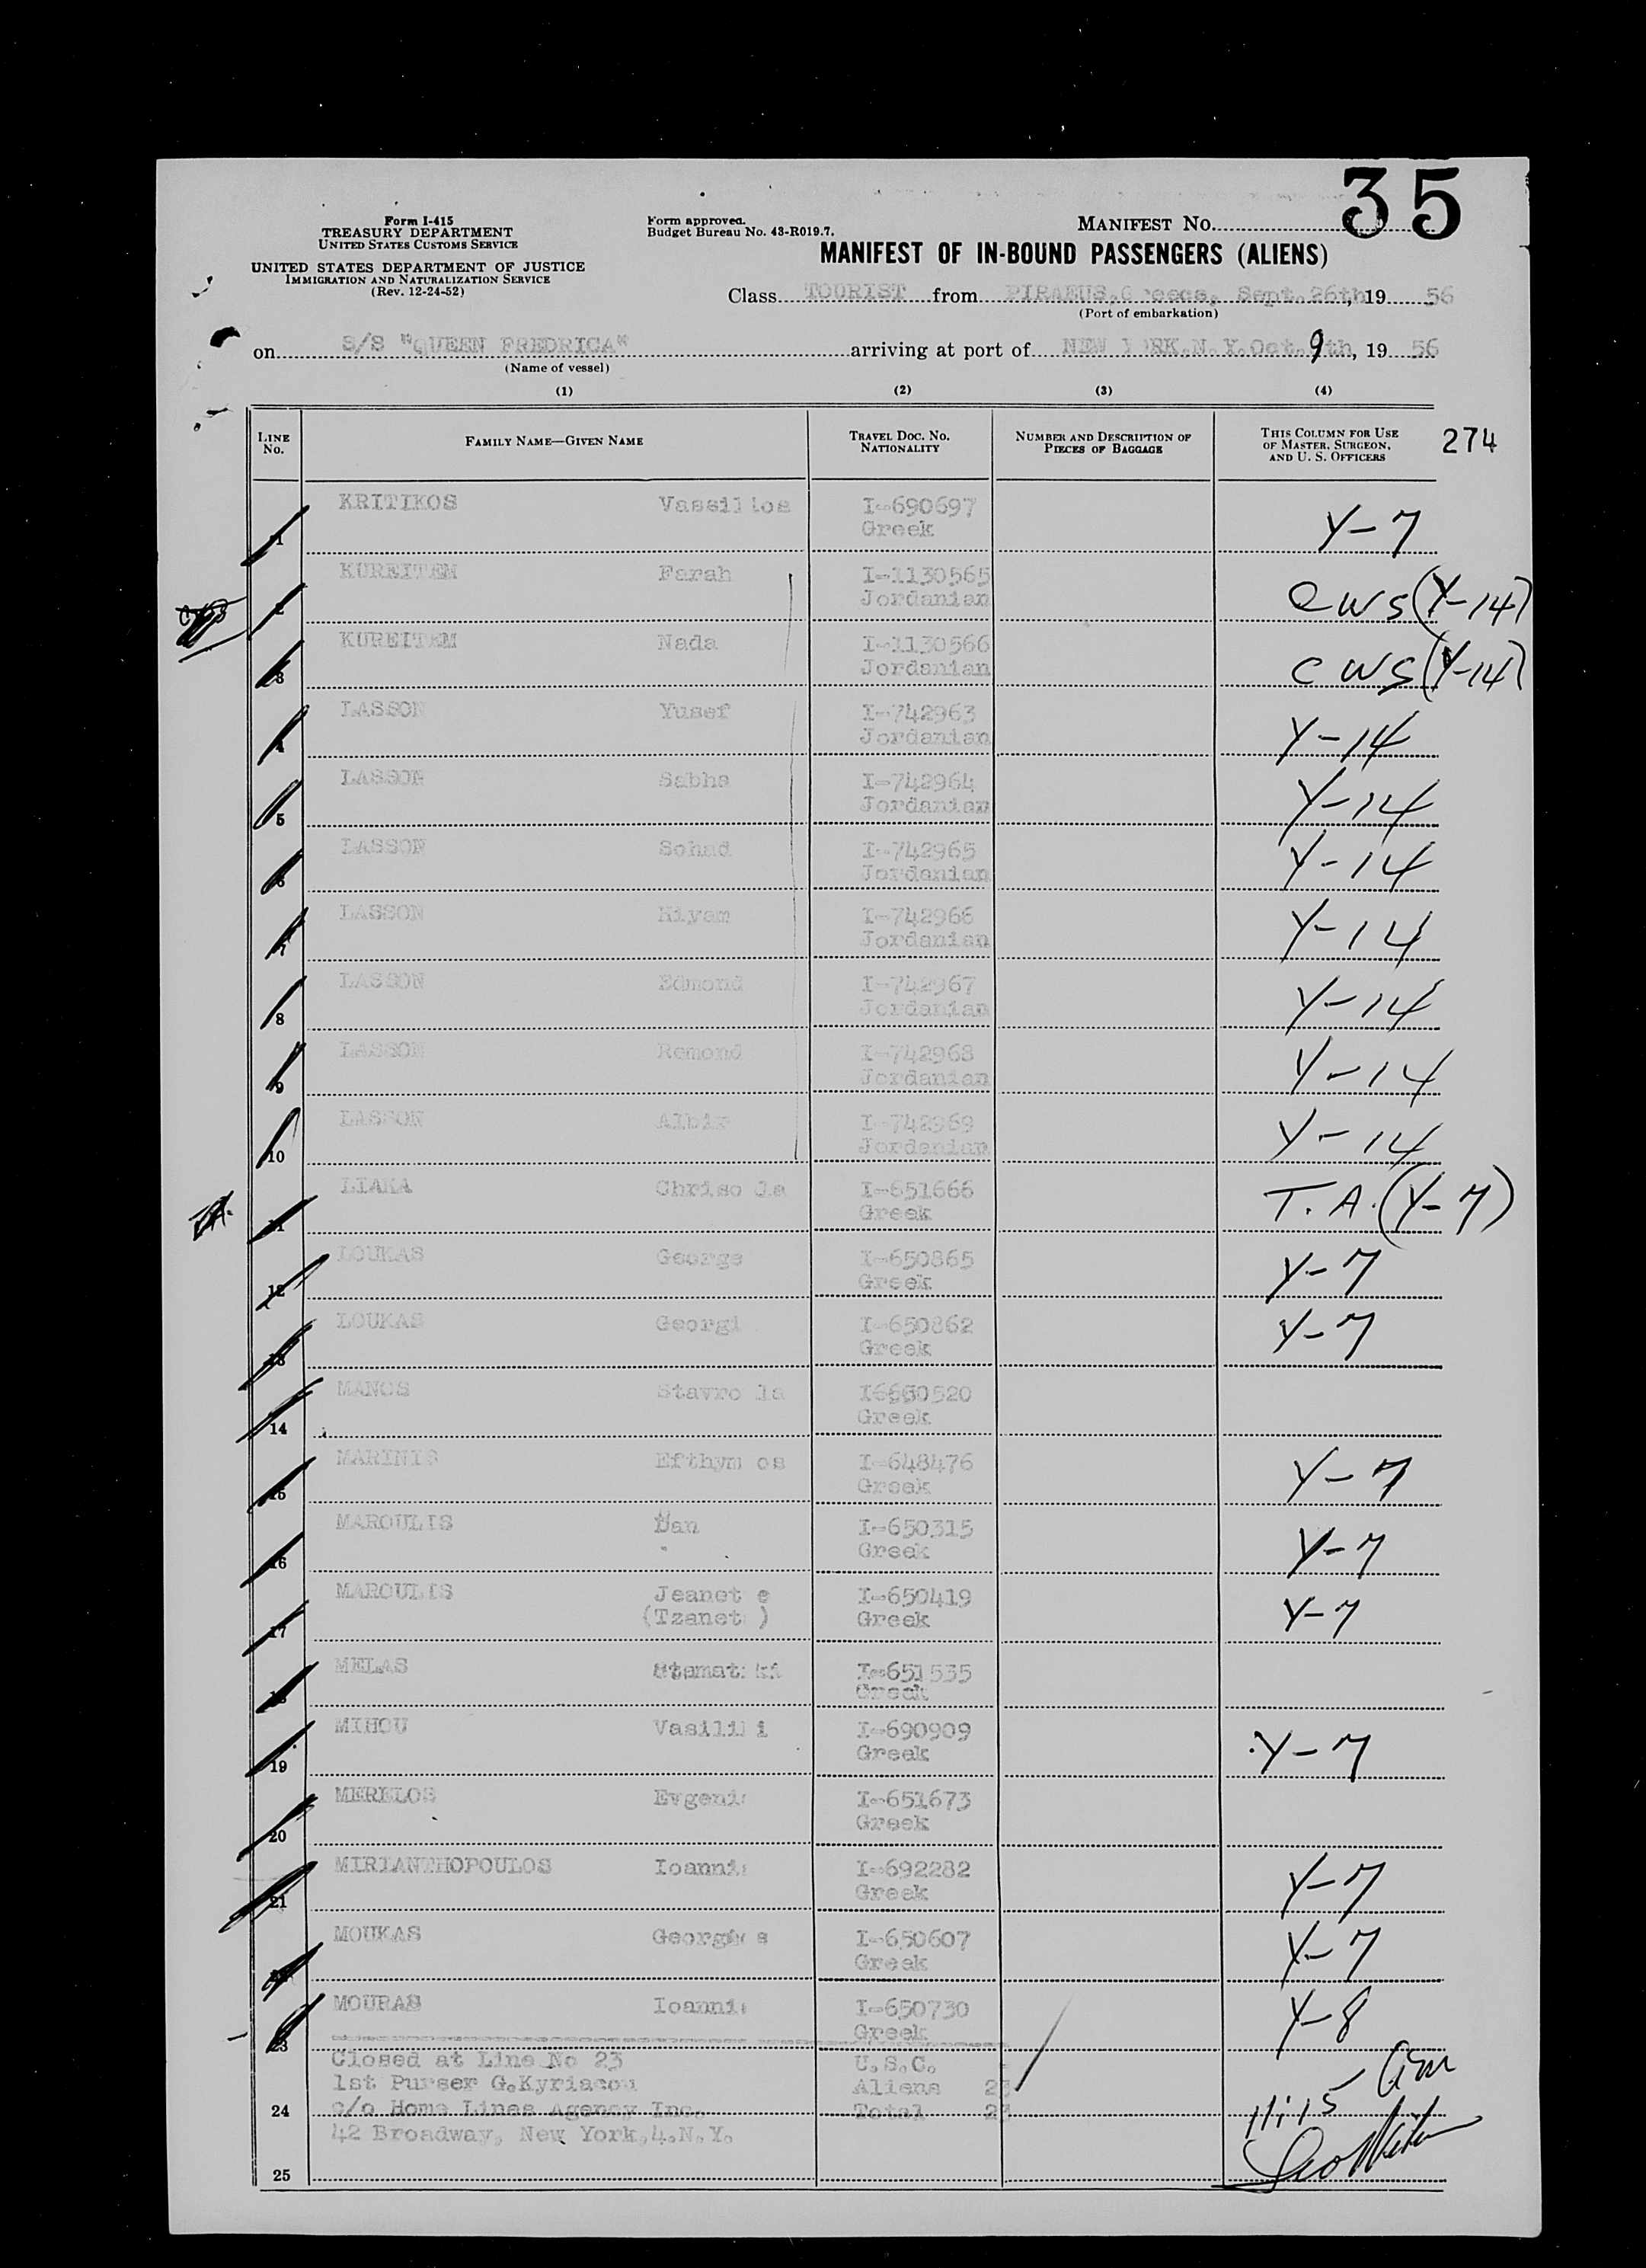 35
Form I-415
TREASURY DEPARTMENT
UNITED STATES CUSTOMS SERVICE
UNITED STATES DEPARTMENT OF JUSTICE
IMMIGRATION AND NATURALIZATION SERVICE
(Rev. 12-24-52)
Form approved.
Budget Bureau No. 43-R019.7.
MANIFEST No.
MANIFEST OF IN-BOUND PASSENGERS (ALIENS)
Class TOURIST from PIRAEUS, Greece, Sept. 26th, 19 56
(Port of embarkation)
on S/S "QUEEN FREDRICA" arriving at port of NEW YORK, N.Y. Oct. 9th, 19 56
(Name of vessel)
(1) (2) (3) (4)
LINE No. FAMILY NAME—GIVEN NAME TRAVEL DOC. NO. NATIONALITY NUMBER AND DESCRIPTION OF PIECES OF BAGGAGE THIS COLUMN FOR USE OF MASTER, SURGEON, AND U. S. OFFICERS 274
1 KRITIKOS Vassilios I-690697 Greek Y-7
2 KUREITEM Farah I-1130565 Jordanian CWS (Y-14)
3 KUREITEM Nada I-1130566 Jordanian CWS (Y-14)
4 LASSON Yusef I-742963 Jordanian Y-14
5 LASSON Sabha I-742964 Jordanian Y-14
6 LASSON Sohad I-742965 Jordanian Y-14
7 LASSON Kiyam I-742966 Jordanian Y-14
8 LASSON Edmond I-742967 Jordanian Y-14
9 LASSON Remond I-742968 Jordanian Y-14
10 LASSON Albir I-742969 Jordanian Y-14
11 LIAKA Chriso la I-651666 Greek T.A. (Y-7)
12 LOUKAS George I-650865 Greek Y-7
13 LOUKAS Georgi I-650862 Greek Y-7
14 MANOS Stavro la Greek
15 MARINIS Efthym os I-648476 Greek Y-7
16 MAROULIS Dan I-650315 Greek Y-7
17 MAROULIS Jeanet e (Tzanet ) I-650419 Greek Y-7
18 MELAS Stamat ki I-651535 Greek
19 MIHOU Vasili i I-690909 Greek Y-7
20 MERELOS Evgeni I-651673 Greek
21 MIRIANTHOPOULOS Ioanni I-692282 Greek Y-7
22 MOUKAS Georg s I-650607 Greek Y-7
23 MOURAS Ioanni I-650730 Greek Y-8
Closed at Line No 23 U.S.C. -
1st Purser G.Kyriacou Aliens 23
24 c/o Home Lines Agency Inc. Total 23 11:15 am
42 Broadway, New York,4.N.Y.
25